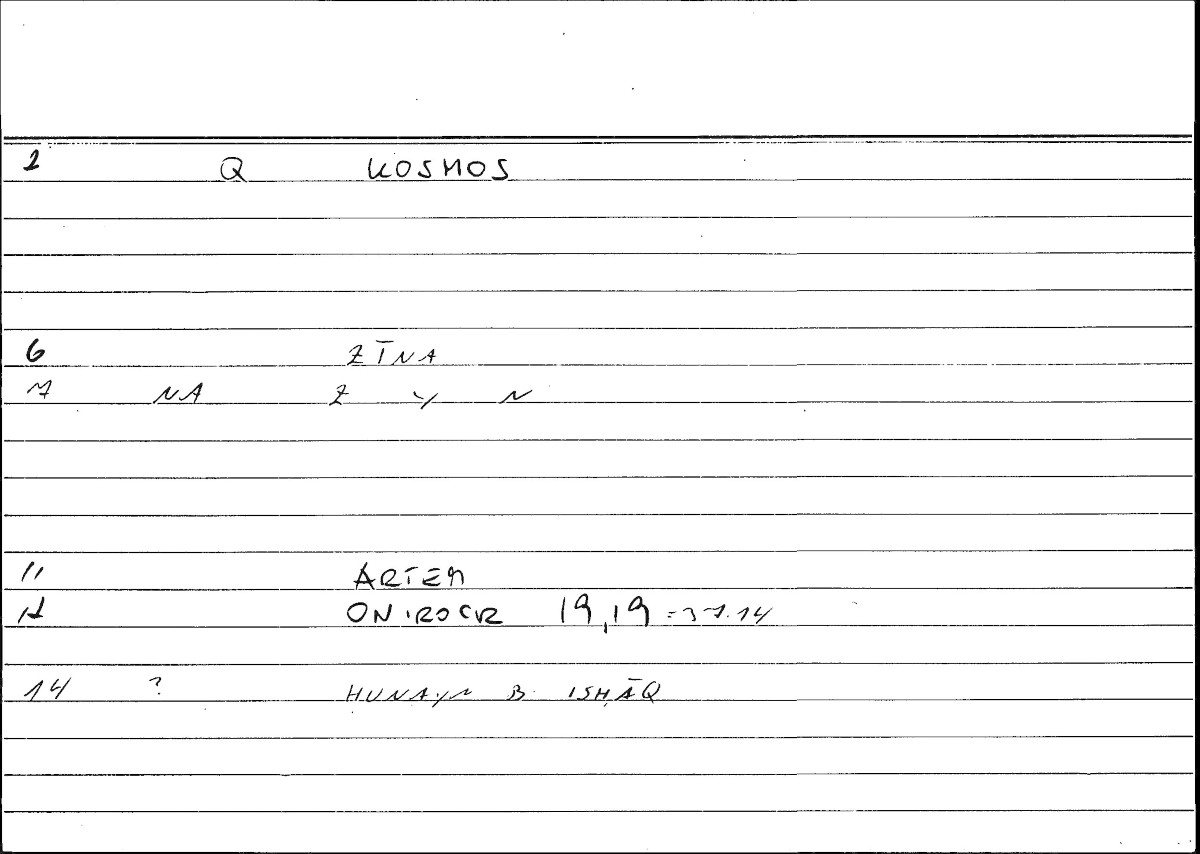 1 Q KOSMOS
6 ZĪNA
7 NA Z Y N
11 ARTEM
12 ONIROCR 19,19 = 37.14
14 ? ḤUNAYN B. ISḤĀQ